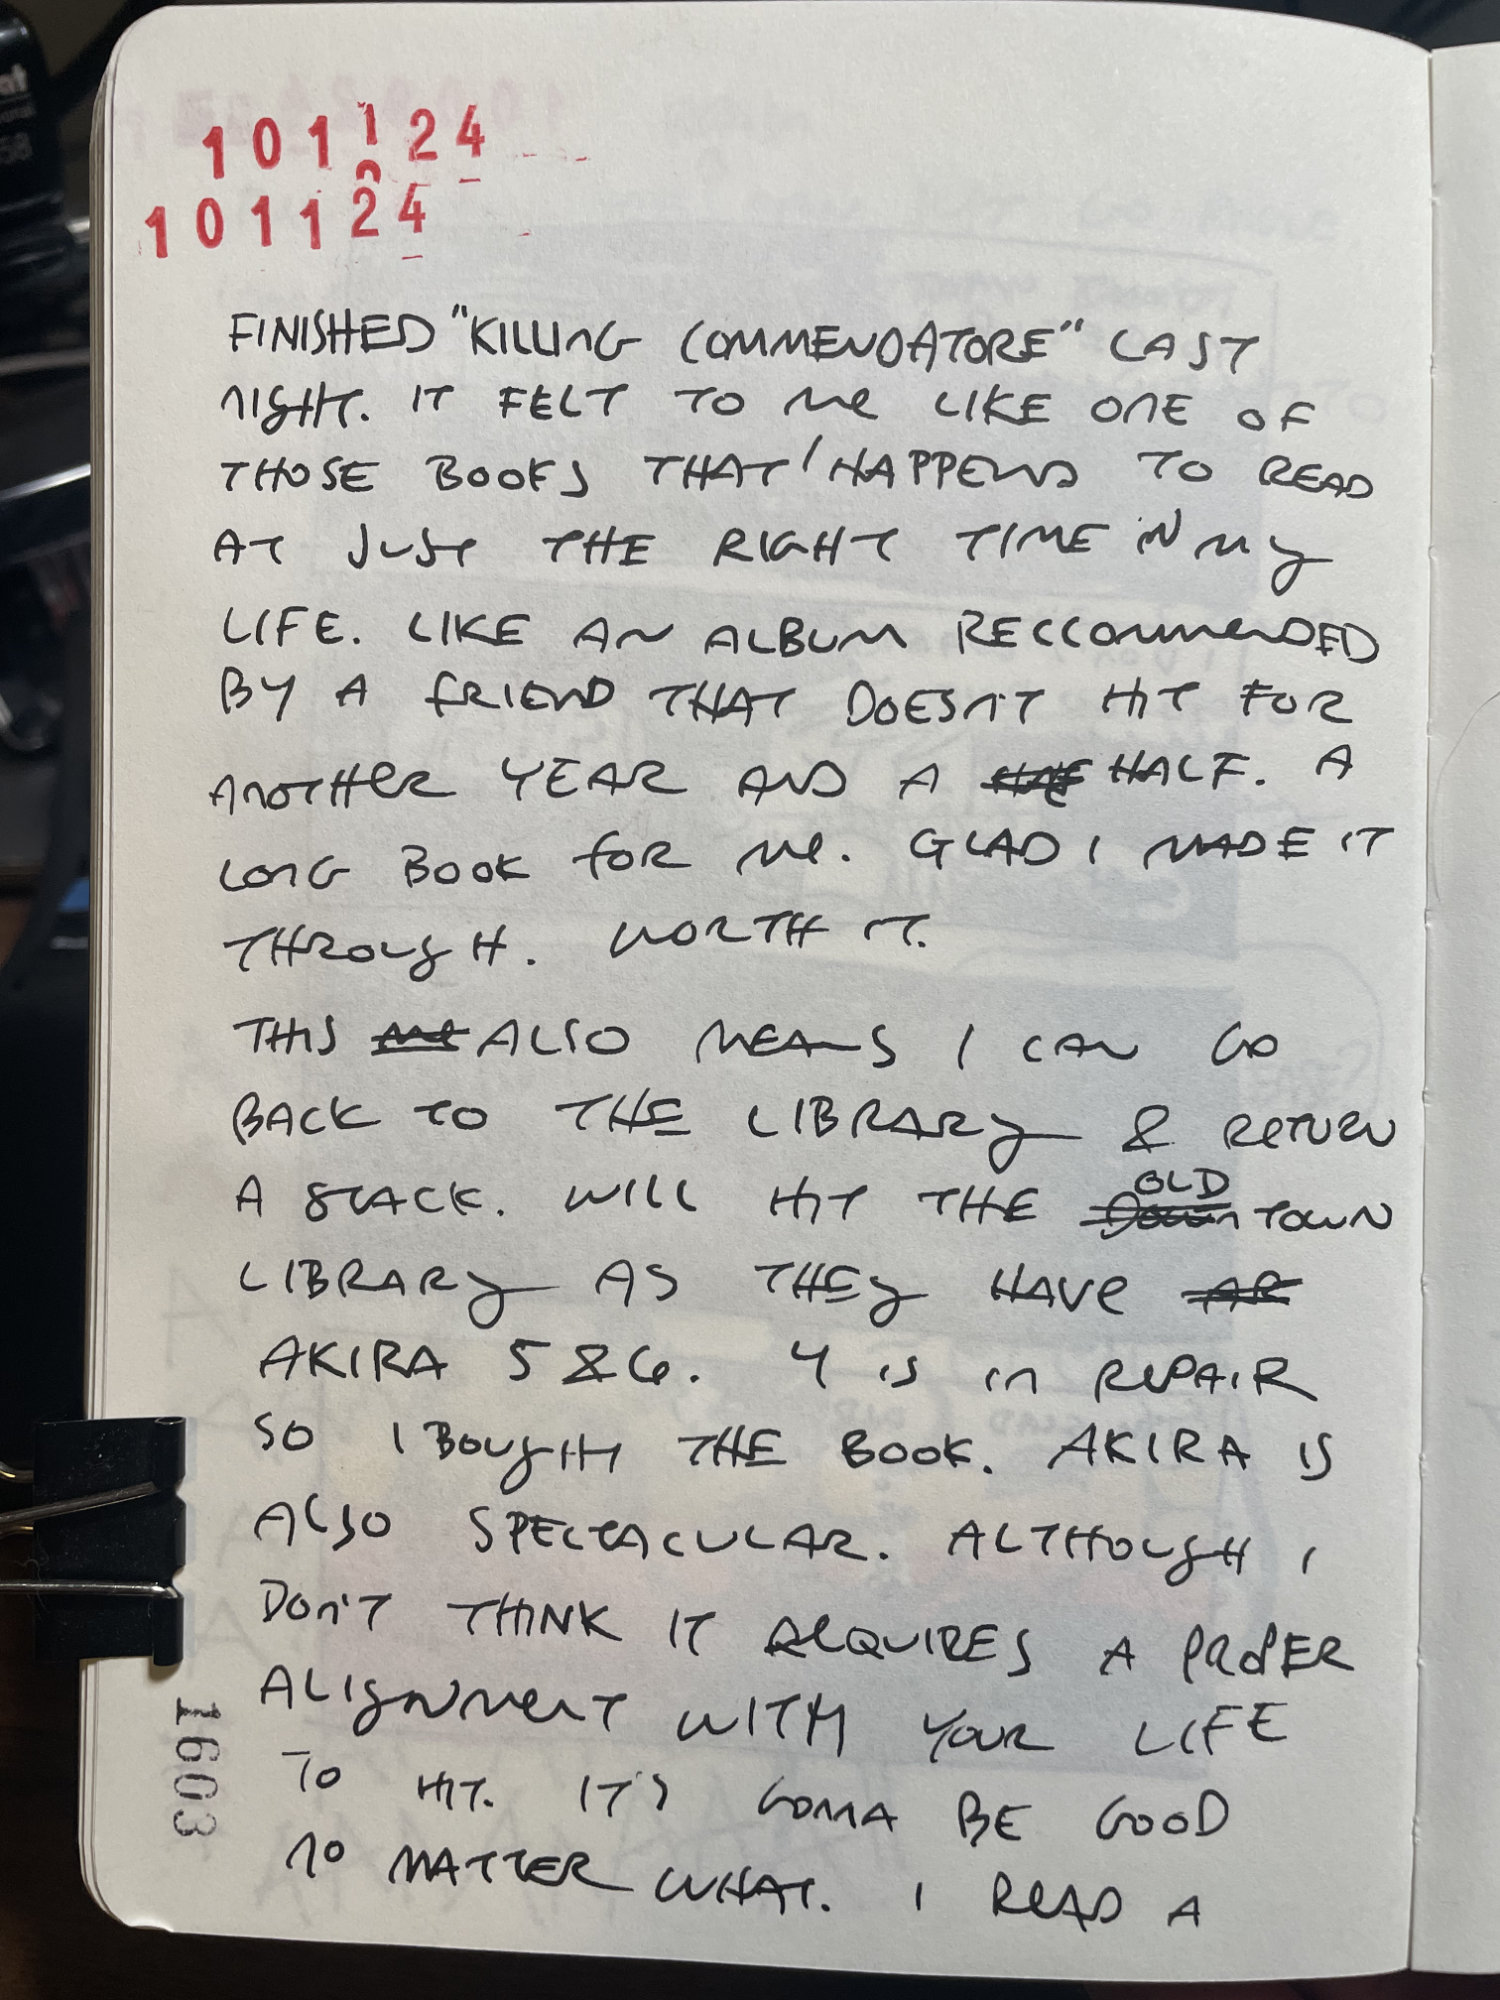 101124
101124
FINISHED "KILLING COMMENDATORE" LAST
NIGHT. IT FELT TO ME LIKE ONE OF
THOSE BOOKS THAT I HAPPEND TO READ
AT JUST THE RIGHT TIME IN MY
LIFE. LIKE AN ALBUM RECCOMMENDED
BY A FRIEND THAT DOESN'T HIT FOR
ANOTHER YEAR AND A HALF. A
LONG BOOK FOR ME. GLAD I MADE IT
THROUGH. WORTH IT.
THIS ME ALSO MEANS I CAN GO
BACK TO THE LIBRARY & RETURN
A STACK. WILL HIT THE OLD DOWN TOWN
LIBRARY AS THEY HAVE AR
AKIRA 5 & 6. 4 IS IN REPAIR
SO I BOUGHT THE BOOK. AKIRA IS
ALSO SPECTACULAR. ALTHOUGH I
DON'T THINK IT REQUIRES A PROPER
ALIGNMENT WITH YOUR LIFE
TO HIT. IT'S GONNA BE GOOD
NO MATTER WHAT. I READ A
1603